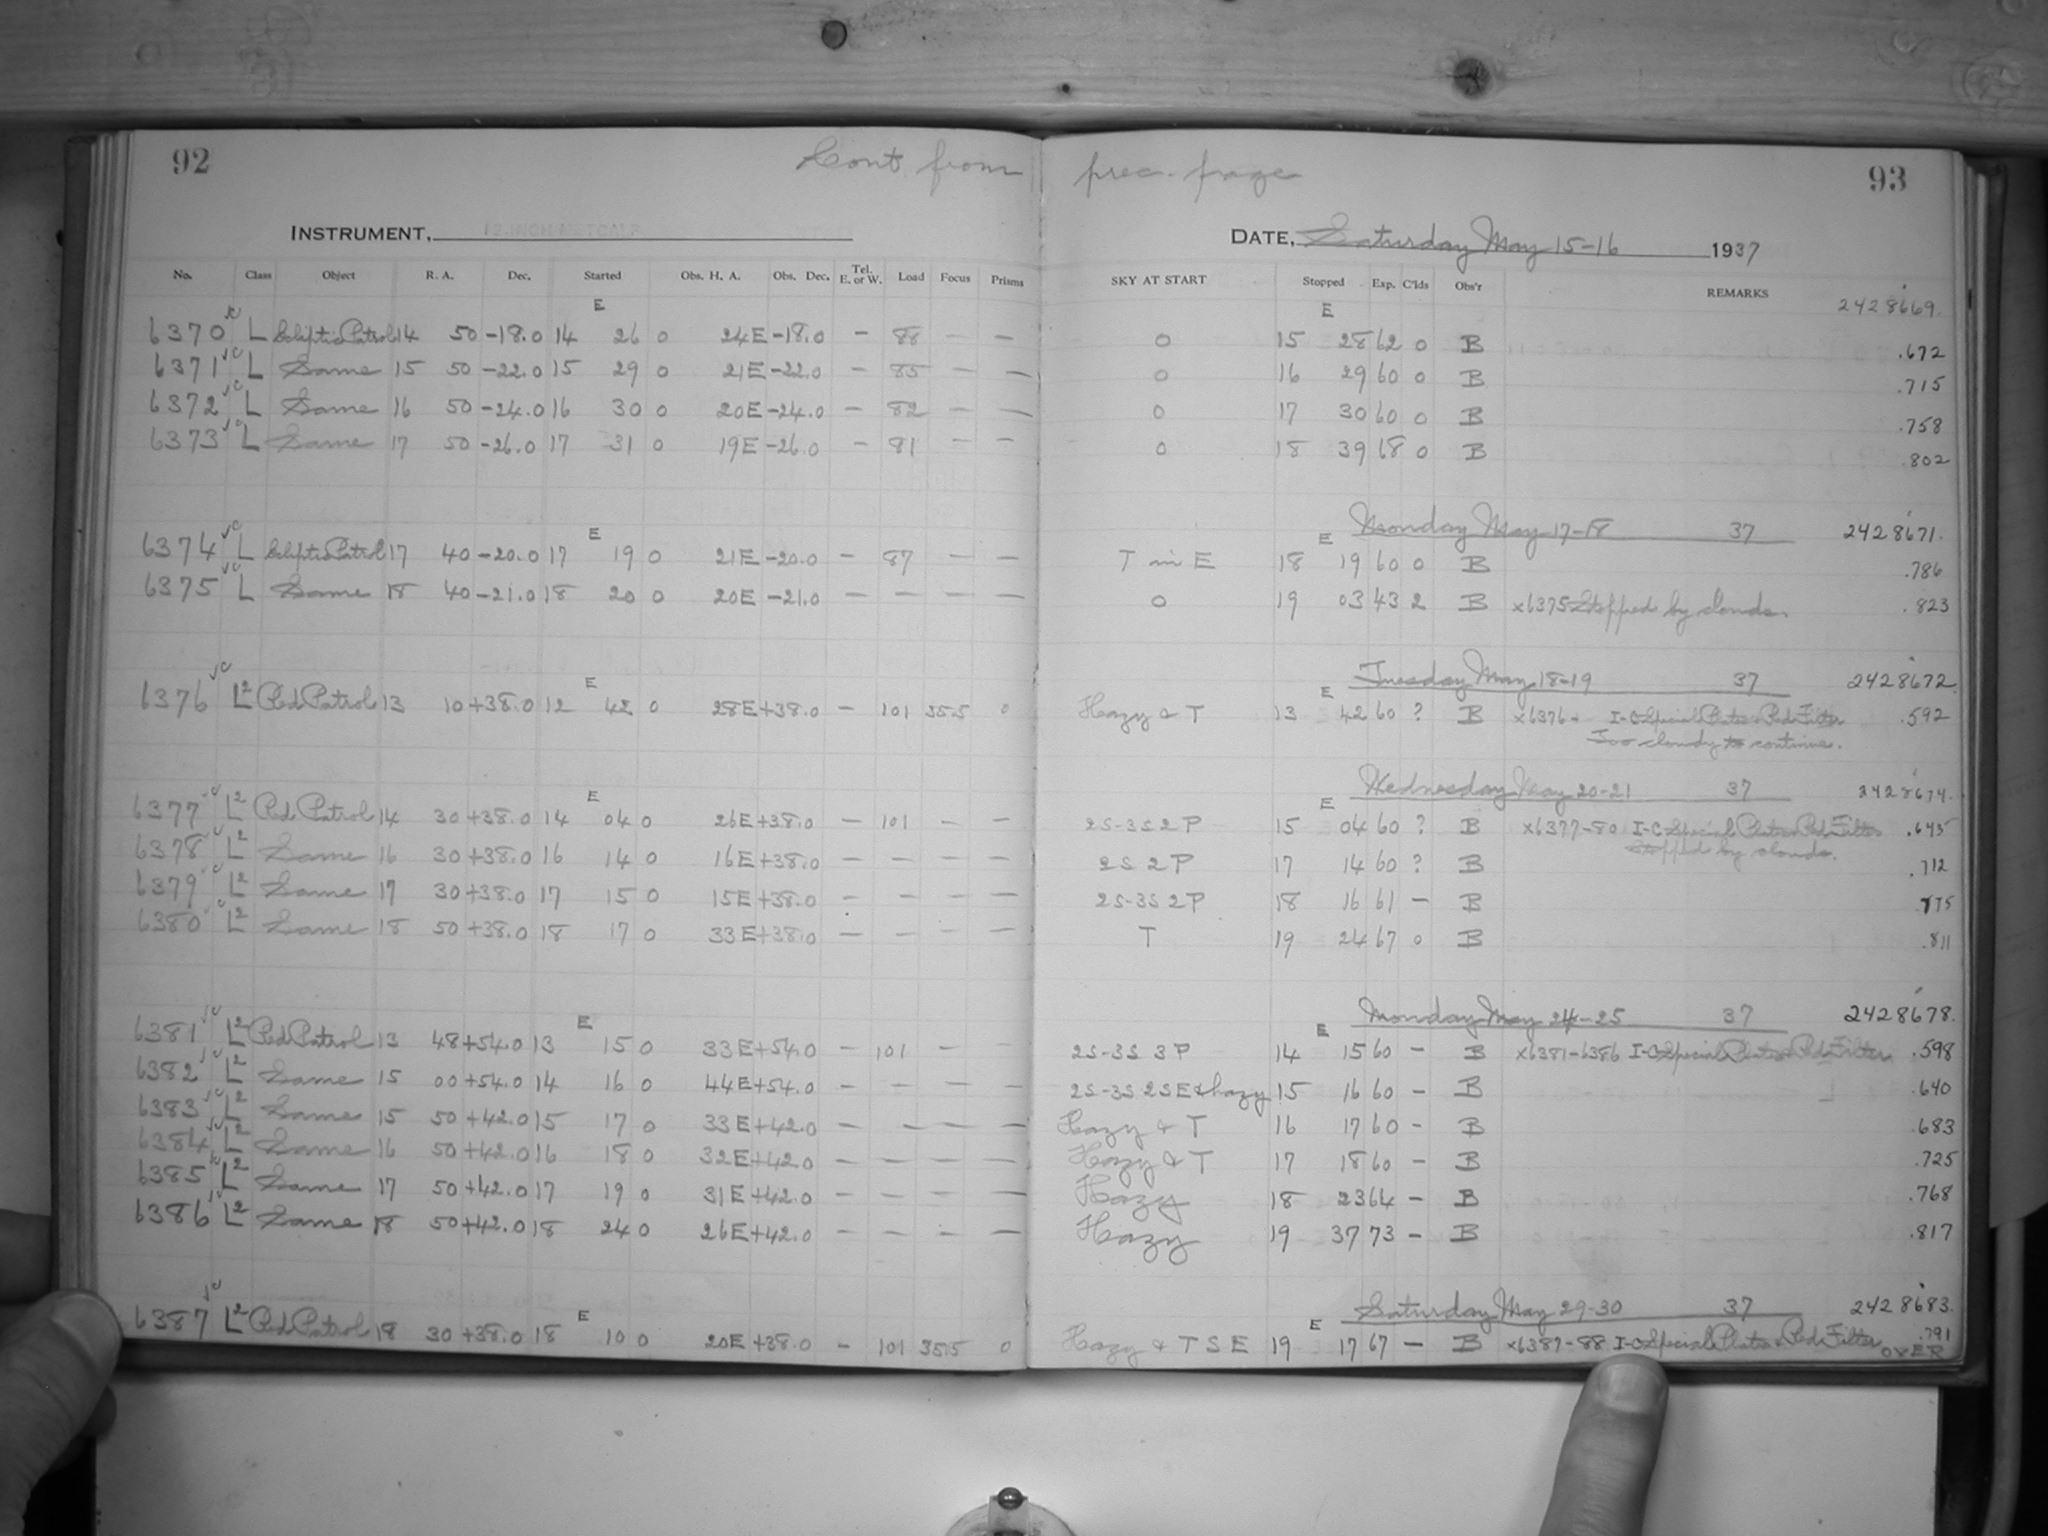 92
Cont. from prec. page
93
INSTRUMENT, 12-INCH METCALF
DATE, Saturday May 15-16 1937
No. Class Object R. A. Dec. Started Obs. H. A. Obs. Dec. Tel. E. or W. Load Focus Prisms SKY AT START Stopped Exp. C'lds Obs'r REMARKS
E E 2428669.
6370 L Ecliptic Patrol 14 50 -18.0 14 26 0 24E -18.0 - 88 - - 0 15 28 62 0 B .672
6371 L Same 15 50 -22.0 15 29 0 21E -22.0 - 85 - - 0 16 29 60 0 B .715
6372 L Same 16 50 -24.0 16 30 0 20E -24.0 - 82 - - 0 17 30 60 0 B .758
6373 L Same 17 50 -26.0 17 31 0 19E -26.0 - 81 - - 0 18 39 68 0 B .802
E E Monday May 17-18 37 2428671.
6374 L Ecliptic Patrol 17 40 -20.0 17 19 0 21E -20.0 - 87 - - T in E 18 19 60 0 B .786
6375 L Same 18 40 -21.0 18 20 0 20E -21.0 - - - - 0 19 03 43 2 B x6375 Stopped by clouds. .823
E E Tuesday May 18-19 37 2428672.
6376 L2 Red Patrol 13 10 +38.0 12 42 0 28E +38.0 - 101 35.5 0 Hazy & T 13 42 60 ? B x6376- I-C Special Plates & Red Filter .592
Too cloudy to continue.
E E Wednesday May 20-21 37 2428674.
6377 L2 Red Patrol 14 30 +38.0 14 04 0 26E +38.0 - 101 - - 2S-3S 2P 15 04 60 ? B x6377-80 I-C Special Plates & Red Filter .645
Stopped by clouds.
6378 L2 Same 16 30 +38.0 16 14 0 16E +38.0 - - - - 2S 2P 17 14 60 ? B .712
6379 L2 Same 17 30 +38.0 17 15 0 15E +38.0 - - - - 2S-3S 2P 18 16 61 - B
6380 L2 Same 18 50 +38.0 18 17 0 33E +38.0 - - - - T 19 24 67 0 B .811
E E Monday May 24-25 37 2428678.
6381 L2 Red Patrol 13 48 +54.0 13 15 0 33E +54.0 - 101 - - 2S-3S 3P 14 15 60 - B x6381-6386 I-C Special Plates & Red Filter .598
6382 L2 Same 15 00 +54.0 14 16 0 44E +54.0 - - - - 2S-3S 2SE & hazy 15 16 60 - B .640
6383 L2 Same 15 50 +42.0 15 17 0 33E +42.0 - - - - Hazy & T 16 17 60 - B .683
6384 L2 Same 16 50 +42.0 16 18 0 32E +42.0 - - - - Hazy & T 17 18 60 - B .725
6385 L2 Same 17 50 +42.0 17 19 0 31E +42.0 - - - - Hazy 18 23 64 - B .768
6386 L2 Same 18 50 +42.0 18 24 0 26E +42.0 - - - - Hazy 19 37 73 - B .817
E E Saturday May 29-30 37 2428683.
6387 L2 Red Patrol 18 30 +38.0 18 10 0 20E +38.0 - 101 35.5 0 Hazy & T S E 19 17 67 - B x6387-88 I-C Special Plates & Red Filter .791
OVER